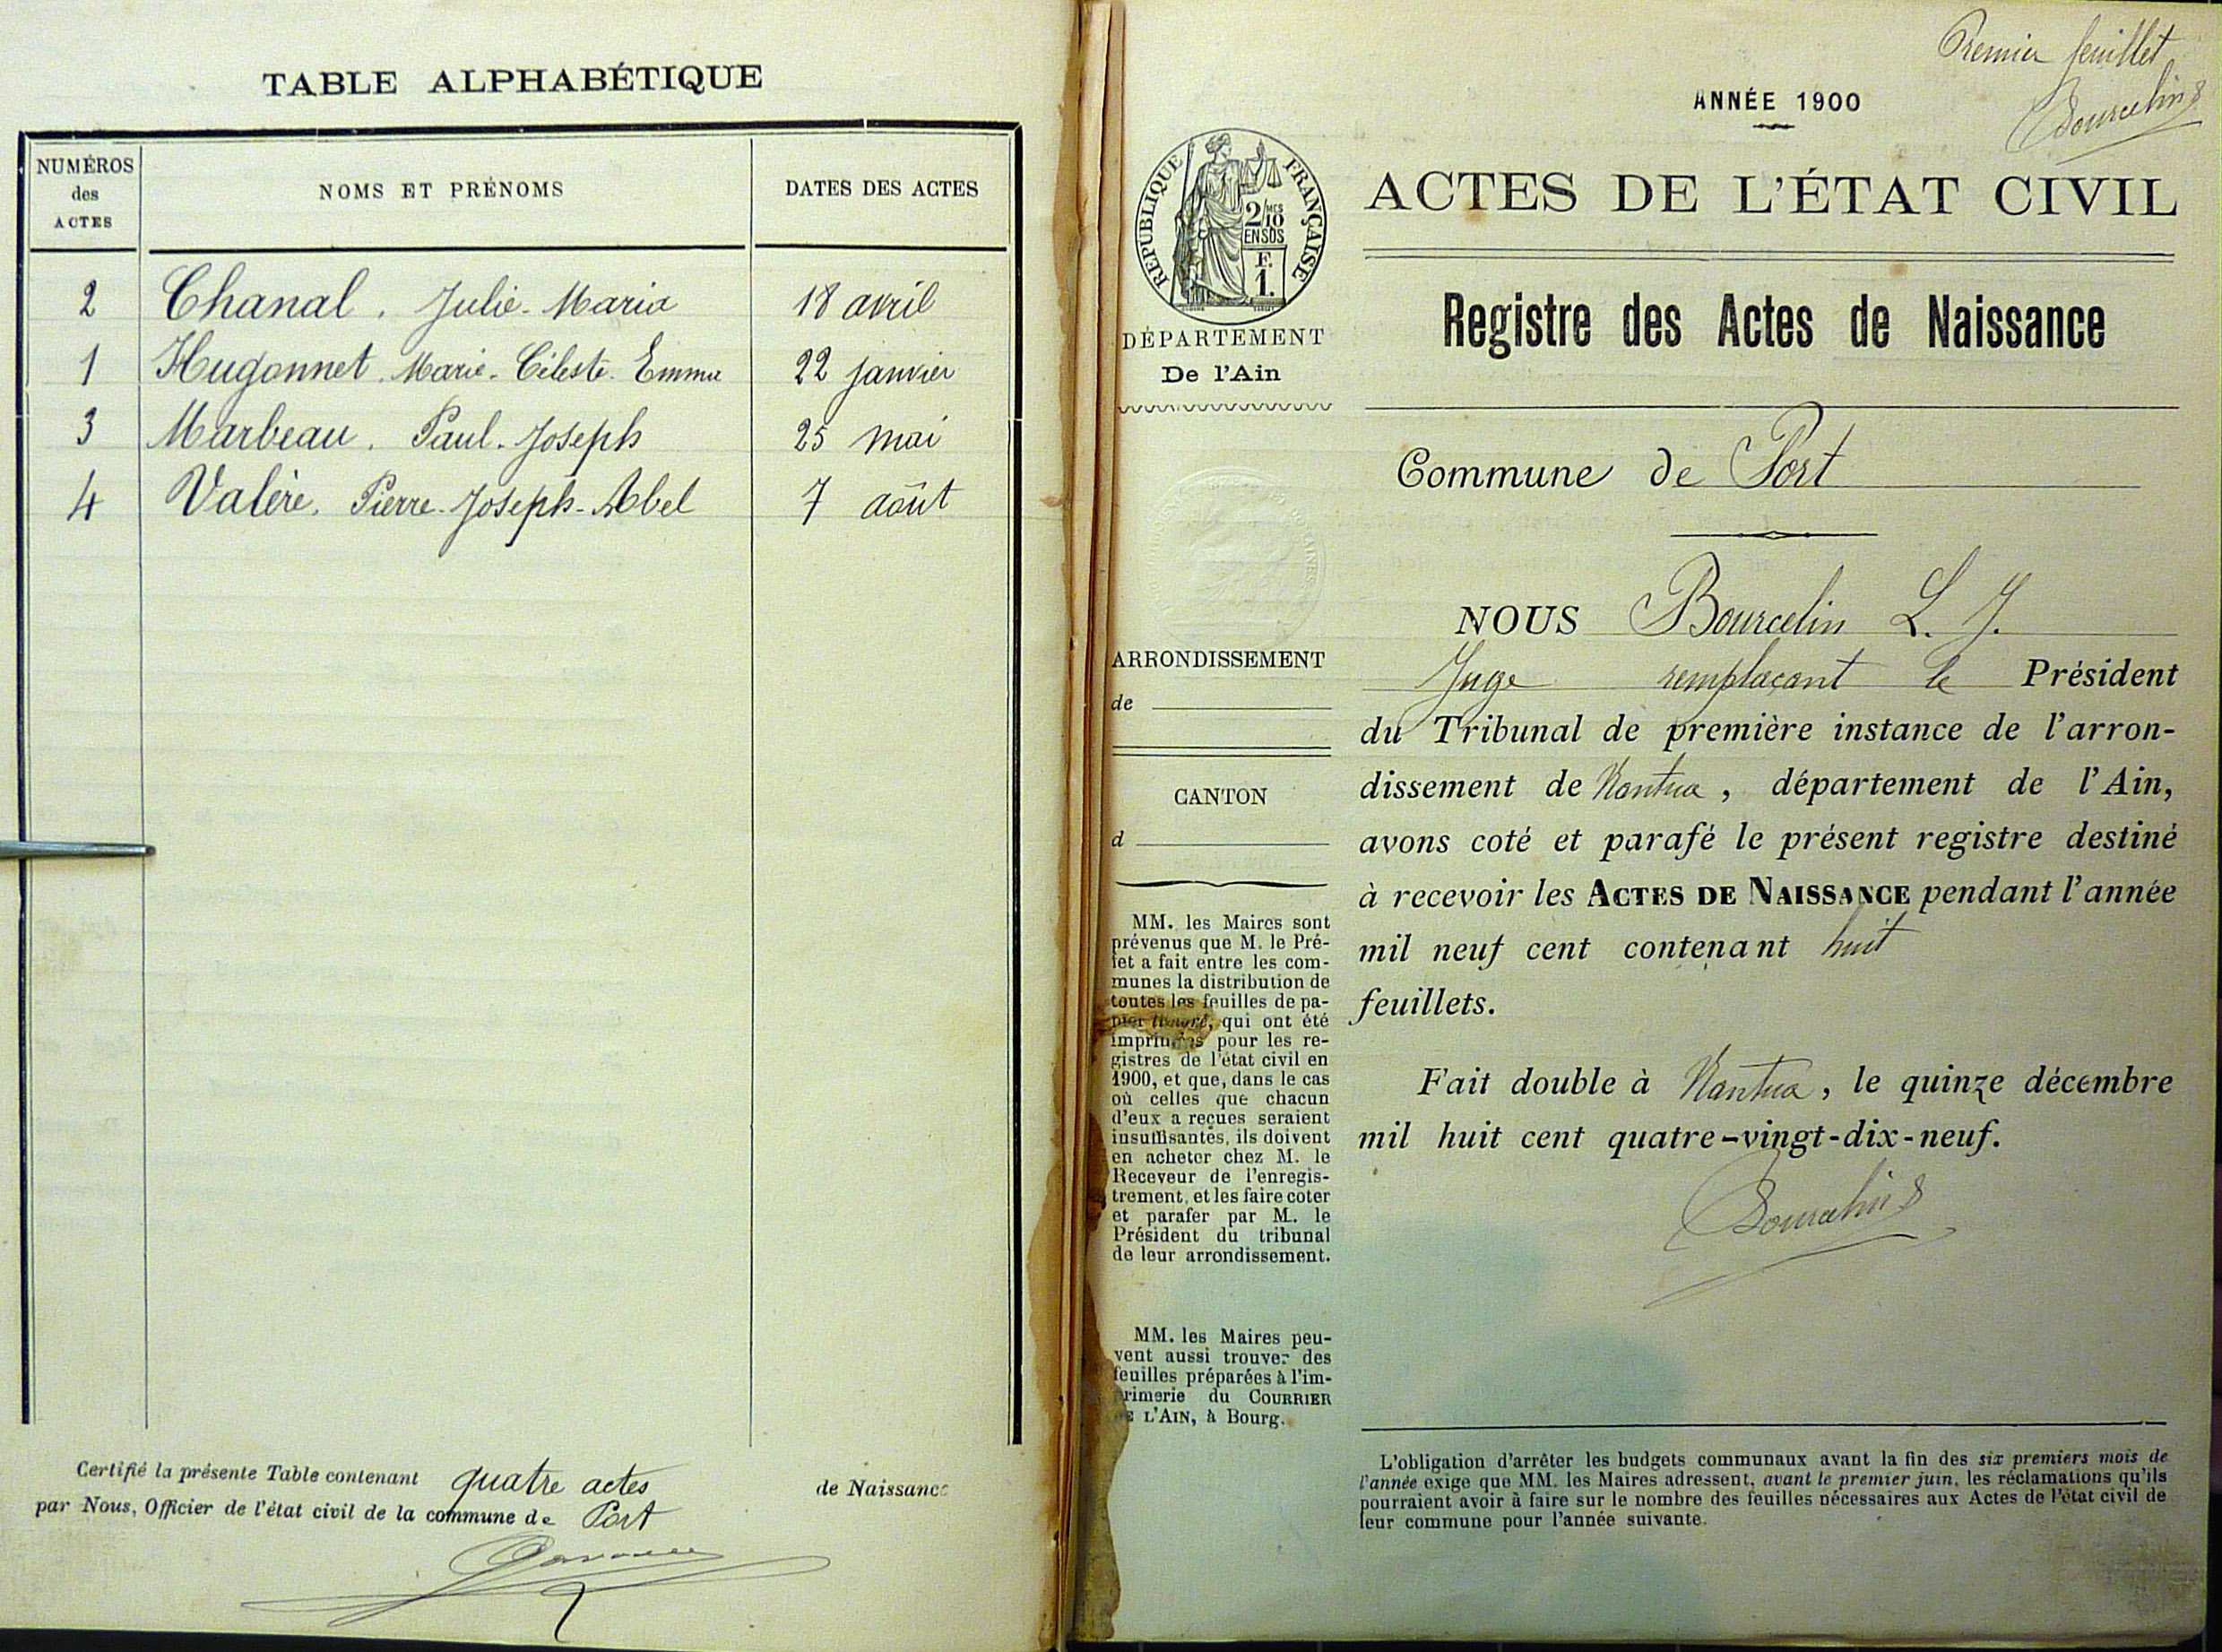 TABLE ALPHABÉTIQUE
NUMÉROS
des
ACTES
NOMS ET PRÉNOMS
DATES DES ACTES
2 Chanal. Julie-Maria 18 avril
1 Hugonnet. Marie-Céleste-Emma 22 janvier
3 Marbeau. Paul-Joseph 25 mai
4 Valère. Pierre-Joseph-Abel 7 août
Certifié la présente Table contenant quatre actes de Naissance
par Nous, Officier de l'état civil de la commune de Port
Premier feuillet
Bourcelin
ANNÉE 1900
RÉPUBLIQUE FRANÇAISE
2/MES 10
EN SUS
F.
1.
DÉPARTEMENT
De l'Ain
ARRONDISSEMENT
de
CANTON
d
MM. les Maires sont
prévenus que M. le Pré-
fet a fait entre les com-
munes la distribution de
toutes les feuilles de pa-
pier timbré, qui ont été
imprimées pour les re-
gistres de l'état civil en
1900, et que, dans le cas
où celles que chacun
d'eux a reçues seraient
insuffisantes, ils doivent
en acheter chez M. le
Receveur de l'enregis-
trement, et les faire coter
et parafer par M. le
Président du tribunal
de leur arrondissement.
MM. les Maires peu-
vent aussi trouver des
feuilles préparées à l'im-
primerie du COURRIER
DE L'AIN, à Bourg.
ACTES DE L'ÉTAT CIVIL
Registre des Actes de Naissance
Commune de Port
NOUS Bourcelin L. J.
Juge remplaçant le Président
du Tribunal de première instance de l'arron-
dissement de Nantua, département de l'Ain,
avons coté et parafé le présent registre destiné
à recevoir les ACTES DE NAISSANCE pendant l'année
mil neuf cent contenant huit
feuillets.
Fait double à Nantua, le quinze décembre
mil huit cent quatre-vingt-dix-neuf.
Bourcelin
L'obligation d'arrêter les budgets communaux avant la fin des six premiers mois de
l'année exige que MM. les Maires adressent, avant le premier juin, les réclamations qu'ils
pourraient avoir à faire sur le nombre des feuilles nécessaires aux Actes de l'état civil de
leur commune pour l'année suivante.